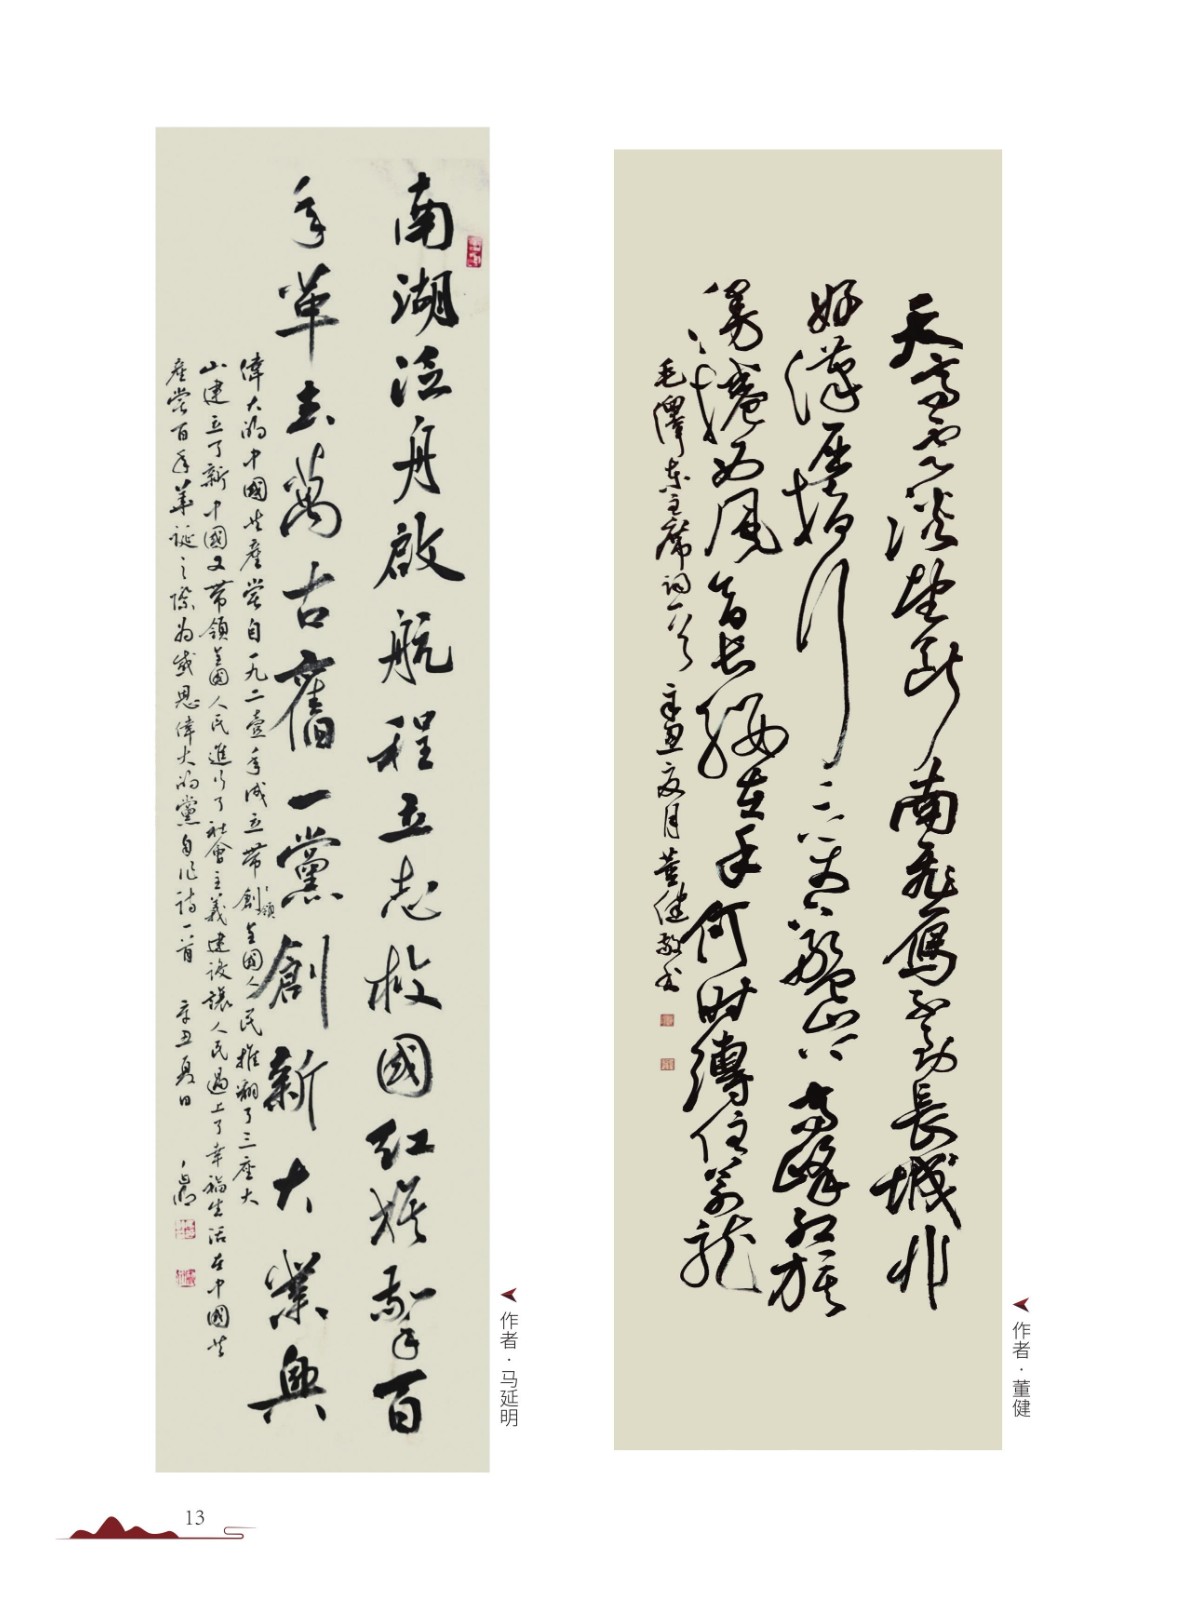 南湖泛舟啟航程立志救國紅旗擎百
年革去萬古舊一黨創新大業興
偉大的中國共產党自一九二壹年成立帶創領全國人民推翻了三座大
山建立了新中國又帶領全國人民進行了社會主義建設讓人民過上了幸福生活在中國共
產党百年華誕之際为感恩偉大的黨自作詩一首 辛丑夏日 延明
作者·马延明
天高雲淡望斷南飛雁不到長城非
好漢屈指行二万六盤山上高峰紅旗
漫捲西風今日長纓在手何時縛住蒼龍
毛澤東主席詞一首 辛丑夏月 董健敬书
作者·董健
13